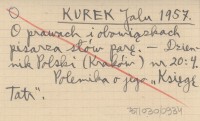 KUREK Jalu 1957.
O prawach i obowiązkach
pisarza słów parę. – Dzien-
nik Polski (Kraków) nr 20:4.
Polemika o jego "Księgę
Tatr".